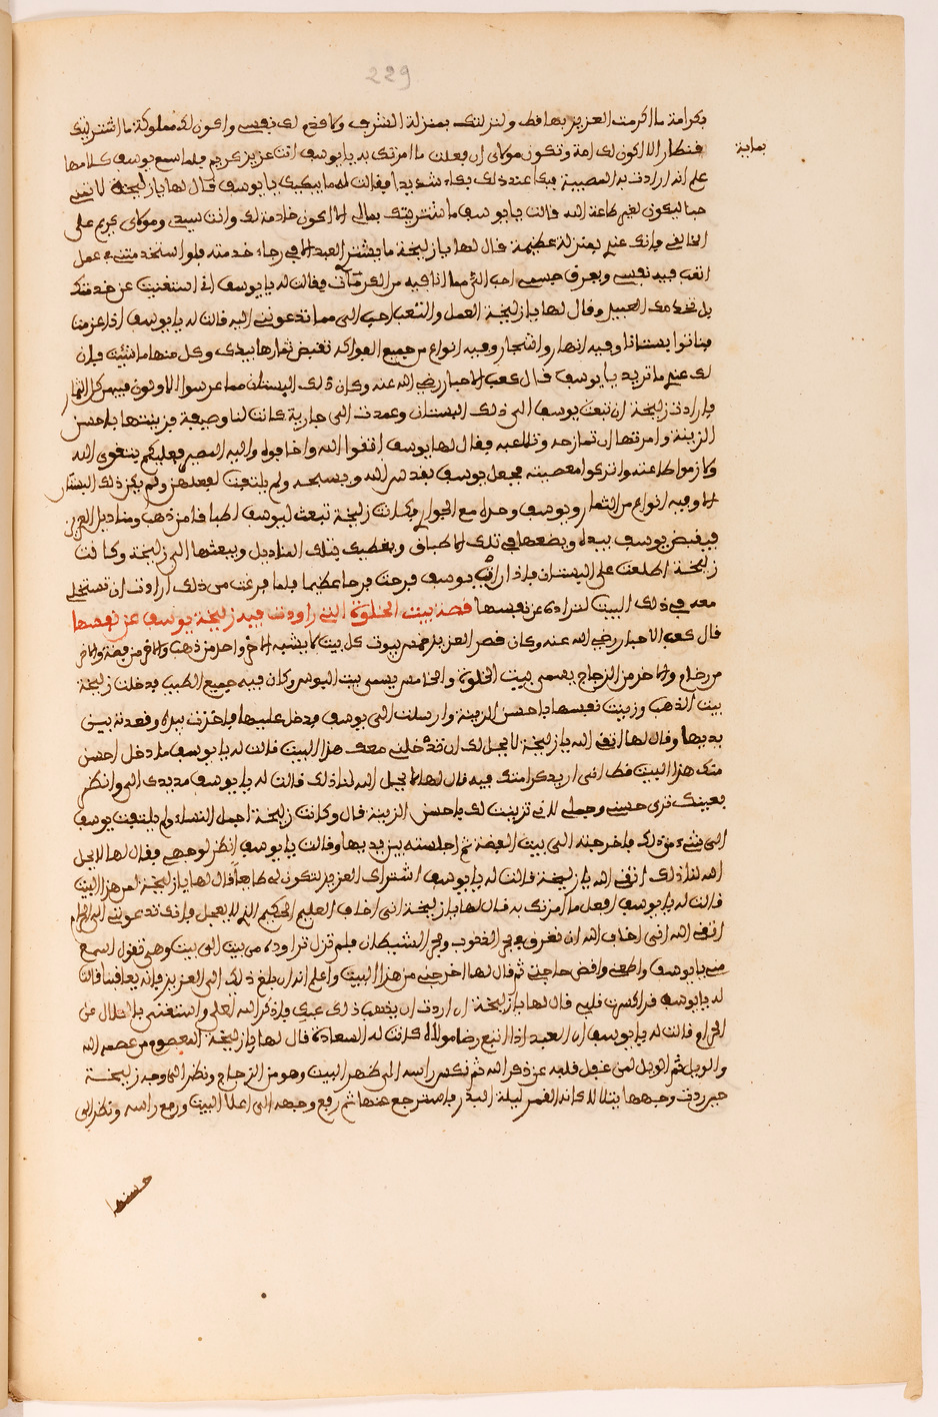 229
بكرامة ما اكرمت العزيز بها قط ولنزلنك بمنزلة الشرف ولا قدم لك نفسي واكون لك مملوكة ما اشتريتك
بماية
قنطار الا لاكون لك امة وتكون مولاي ان فعلت ما امرتك به يا يوسف انت عزيز كريم فلما سمع يوسف كلامها
علم انه ارادت به المعصية فبكا عند ذلك بكاء شديدا فقالت له ما يبكيك يا يوسف قال لها يا زليخة لا تغني
حيا ليكون لغير طاعة الله قالت يا يوسف ما شتريتك بمالي الا لاكون خادمة لك وانت سيدي ومولاي كريم علي
الخالفي وانك عندي بمنزلة عظيمة قال لها يا زليخة ما يشتر العبد الا في رجاء خدمته فلو استخدمتني في عمل
اتعب فيه نفسي ويعرق جسمي احب الي مما انا فيه من الكرمات فقالت له يا يوسف اني استغنيت عن خدمتك
بل تخدمك العبيد وقال لها يا زليخة العمل والتعب احب الي مما تدعونني اليه قالت له يا يوسف اذا عزمنا
فياتوا بستانا وفيه انهار واشجار وفيه انواع من جميع الفواكه تقبض ثمارها بيدك وكل منها ما شئت فان
لك عندي ما تريد يا يوسف قال كعب الاحبار رضي الله عنه وكان ذلك البستان مما غرسوا الاولون فيه من كل الثمار
فارادت زليخة ان تبعث يوسف الى ذلك البستان وعمدت الى جارية كانت لها وصيفة فزينتها باحسن
الزينة وامرتها ان تمازحه وتلاعبه فقال لها يوسف اتقوا الله واخافوه واليه المصير فعليكم بتقوى الله
ولازموا طاعته واتركوا معصيته فجعل يوسف يقدس الله ويسبحه ولم يلتفت لفعلهن ولم يكن ذلك البستان
الا وفيه انواع من الثمار ويوسف وحده مع الجوار فكانت زليخة تبعث ليوسف اطباقا من ذهب ومناديل الحرير
فيقبض يوسف بيده ويضعها في تلك الاطباق ويغطيها بتلك المناديل ويبعثها الى زليخة وكانت
زليخة اطلعت على البستان فاذا رات يوسف فرحت فرحا عظيما فلما فرغت من ذلك ارادت ان تستخلي
معه في ذلك البيت لتراوده عن نفسها قصة بيت الخلوة التي راودت فيه زليخة يوسف عن نفسها
قال كعب الاحبار رضي الله عنه وكان قصر العزيز خمس بيوت كل بيت لا يشبه الاخر واحد من ذهب والاخر من فضة والاخر
من رخام والاخر من الزجاج يسمى بيت الخلوة والخامس يسمى بيت البوس وكان فيه جميع الطيب فدخلت زليخة
بيت الذهب وزينت نفسها باحسن الزينة وارسلت الى يوسف فدخل عليها فاخذت بيده وقعدته بين
يديها وقال لها اتقي الله يا زليخة لا يحل لك ان تدخلني معك هذا البيت قالت له يا يوسف ما دخل احسن
منك هذا البيت قط اني اريد كرامتك فيه قال لها لا يحل الله لنا ذلك قالت له يا يوسف مد يدك الي وانظر
بعينك ترى حسني وجمالي لاني تزينت لك باحسن الزينة قال وكانت زليخة اجمل النساء ولم يلتفت يوسف
الى شيء من ذلك فاخرجته الى بيت الفضة ثم اجلسته بين يديها وقالت يا يوسف انظر لوجهي فقال لها لا يحل
الله لنا ذلك اتقي الله يا زليخة قالت له يا يوسف اشتراك العزيز لتكون لي طايعا قال لها يا زليخة لمن هذا البيت
قالت له يا يوسف افعل ما امرتك به قال لها يا زليخة اني اخاف العليم الحكيم الذي لا يعجل فانك تدعونني الى الحرام
اتقي الله اني اخاف الله ان نغرق في بحر الذنوب وبحر الشيطان فلم تزل تراوده من بيت الى بيت وهي تقول اسمع
مني يا يوسف واطعني واقض حاجتي ثم قال لها اخرجيني من هذا البيت واعلم انه ان بلغ ذلك الى العزيز فانه يعاقبنا قالت
له يا يوسف قد اكسرت قلبي قال لها يا زليخة ان اردت ان يذهب ذلك عنك فاذكر الله العلي واستغنى بالحلال عن
الحرام قالت له يا يوسف ان العبد اذا اتبع رضا مولاه كانت له السعادة قال لها يا زليخة المعصوم من عصمه الله
والويل ثم الويل لمن غفل قلبه عن ذكر الله ثم نكس راسه الى ظهر البيت وهو من الزجاج ونظر الى وجه زليخة
حين ردت وجهها يتلالا كانه القمر ليلة البدر فاسترجع عنها ثم رفع وجهه الى اعلا البيت ورفع راسه ونظر الى
حسنها